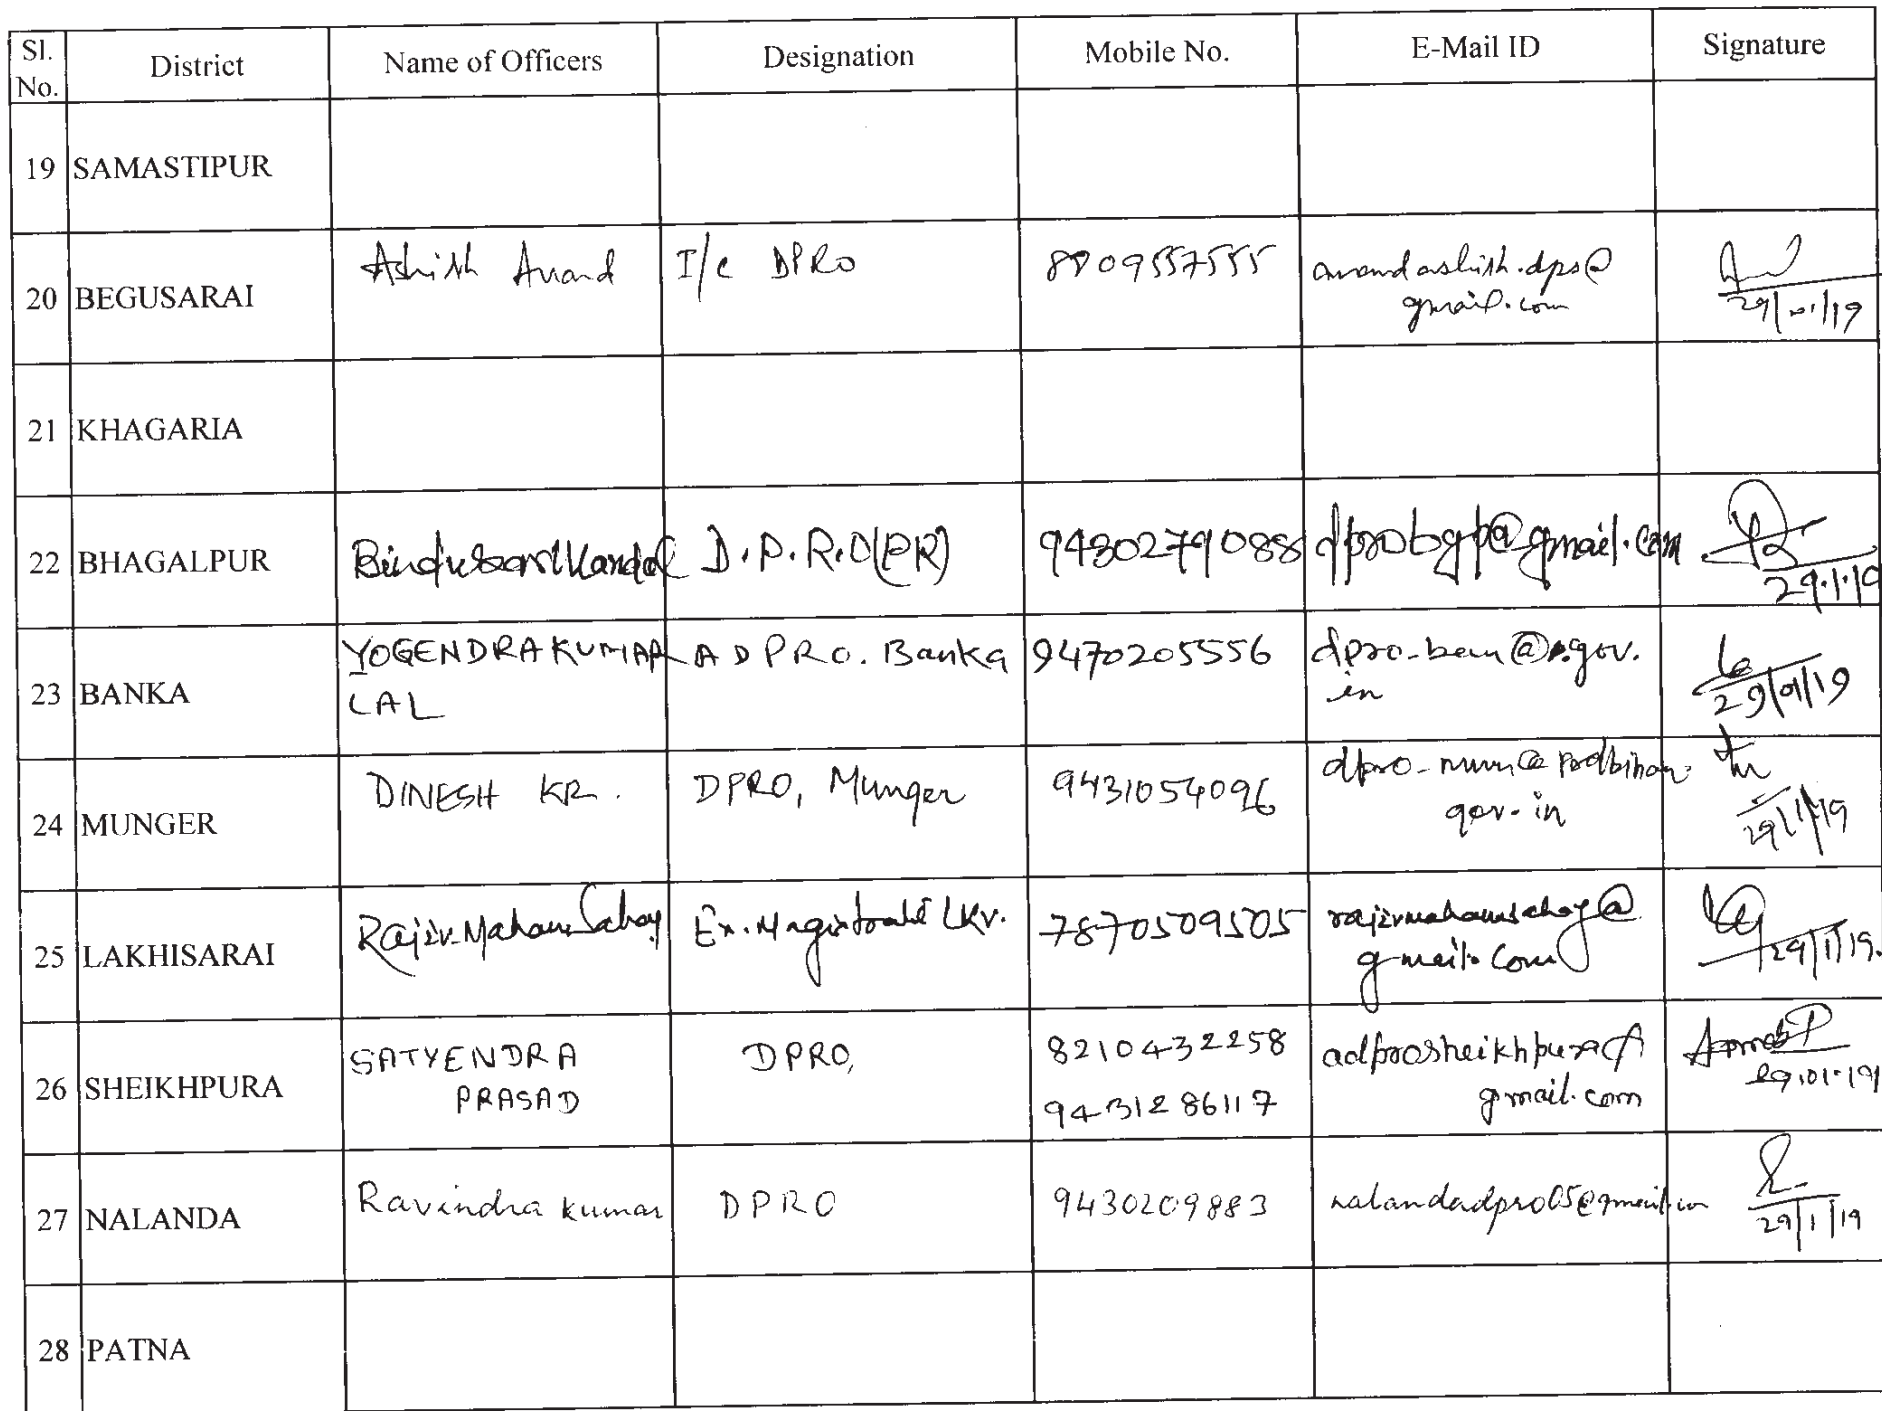 Sl. No. District Name of Officers Designation Mobile No. E-Mail ID Signature
19 SAMASTIPUR
20 BEGUSARAI Ashish Anand I/c DPRO 8809557555 anandashish.dps@
gmail.com
29/01/19
21 KHAGARIA
22 BHAGALPUR D.P.R.O(PR) 9430279088 dprobgp@gmail.com
29.1.19
23 BANKA YOGENDRA KUMAR ADPRO. Banka 9470205556
LAL in
29/01/19
24 MUNGER DINESH KR. DPRO, Munger 9431054096
gov.in
29/1/19
25 LAKHISARAI Ex. Magistrate LKR. 7870509505
gmail.com
29/1/19.
26 SHEIKHPURA SATYENDRA DPRO, 8210432258 adprosheikhpura@
PRASAD 9431286117 gmail.com
29.01.19
27 NALANDA Ravindra Kumar DPRO 9430209883 nalandadpro05@gmail.com
29/1/19
28 PATNA